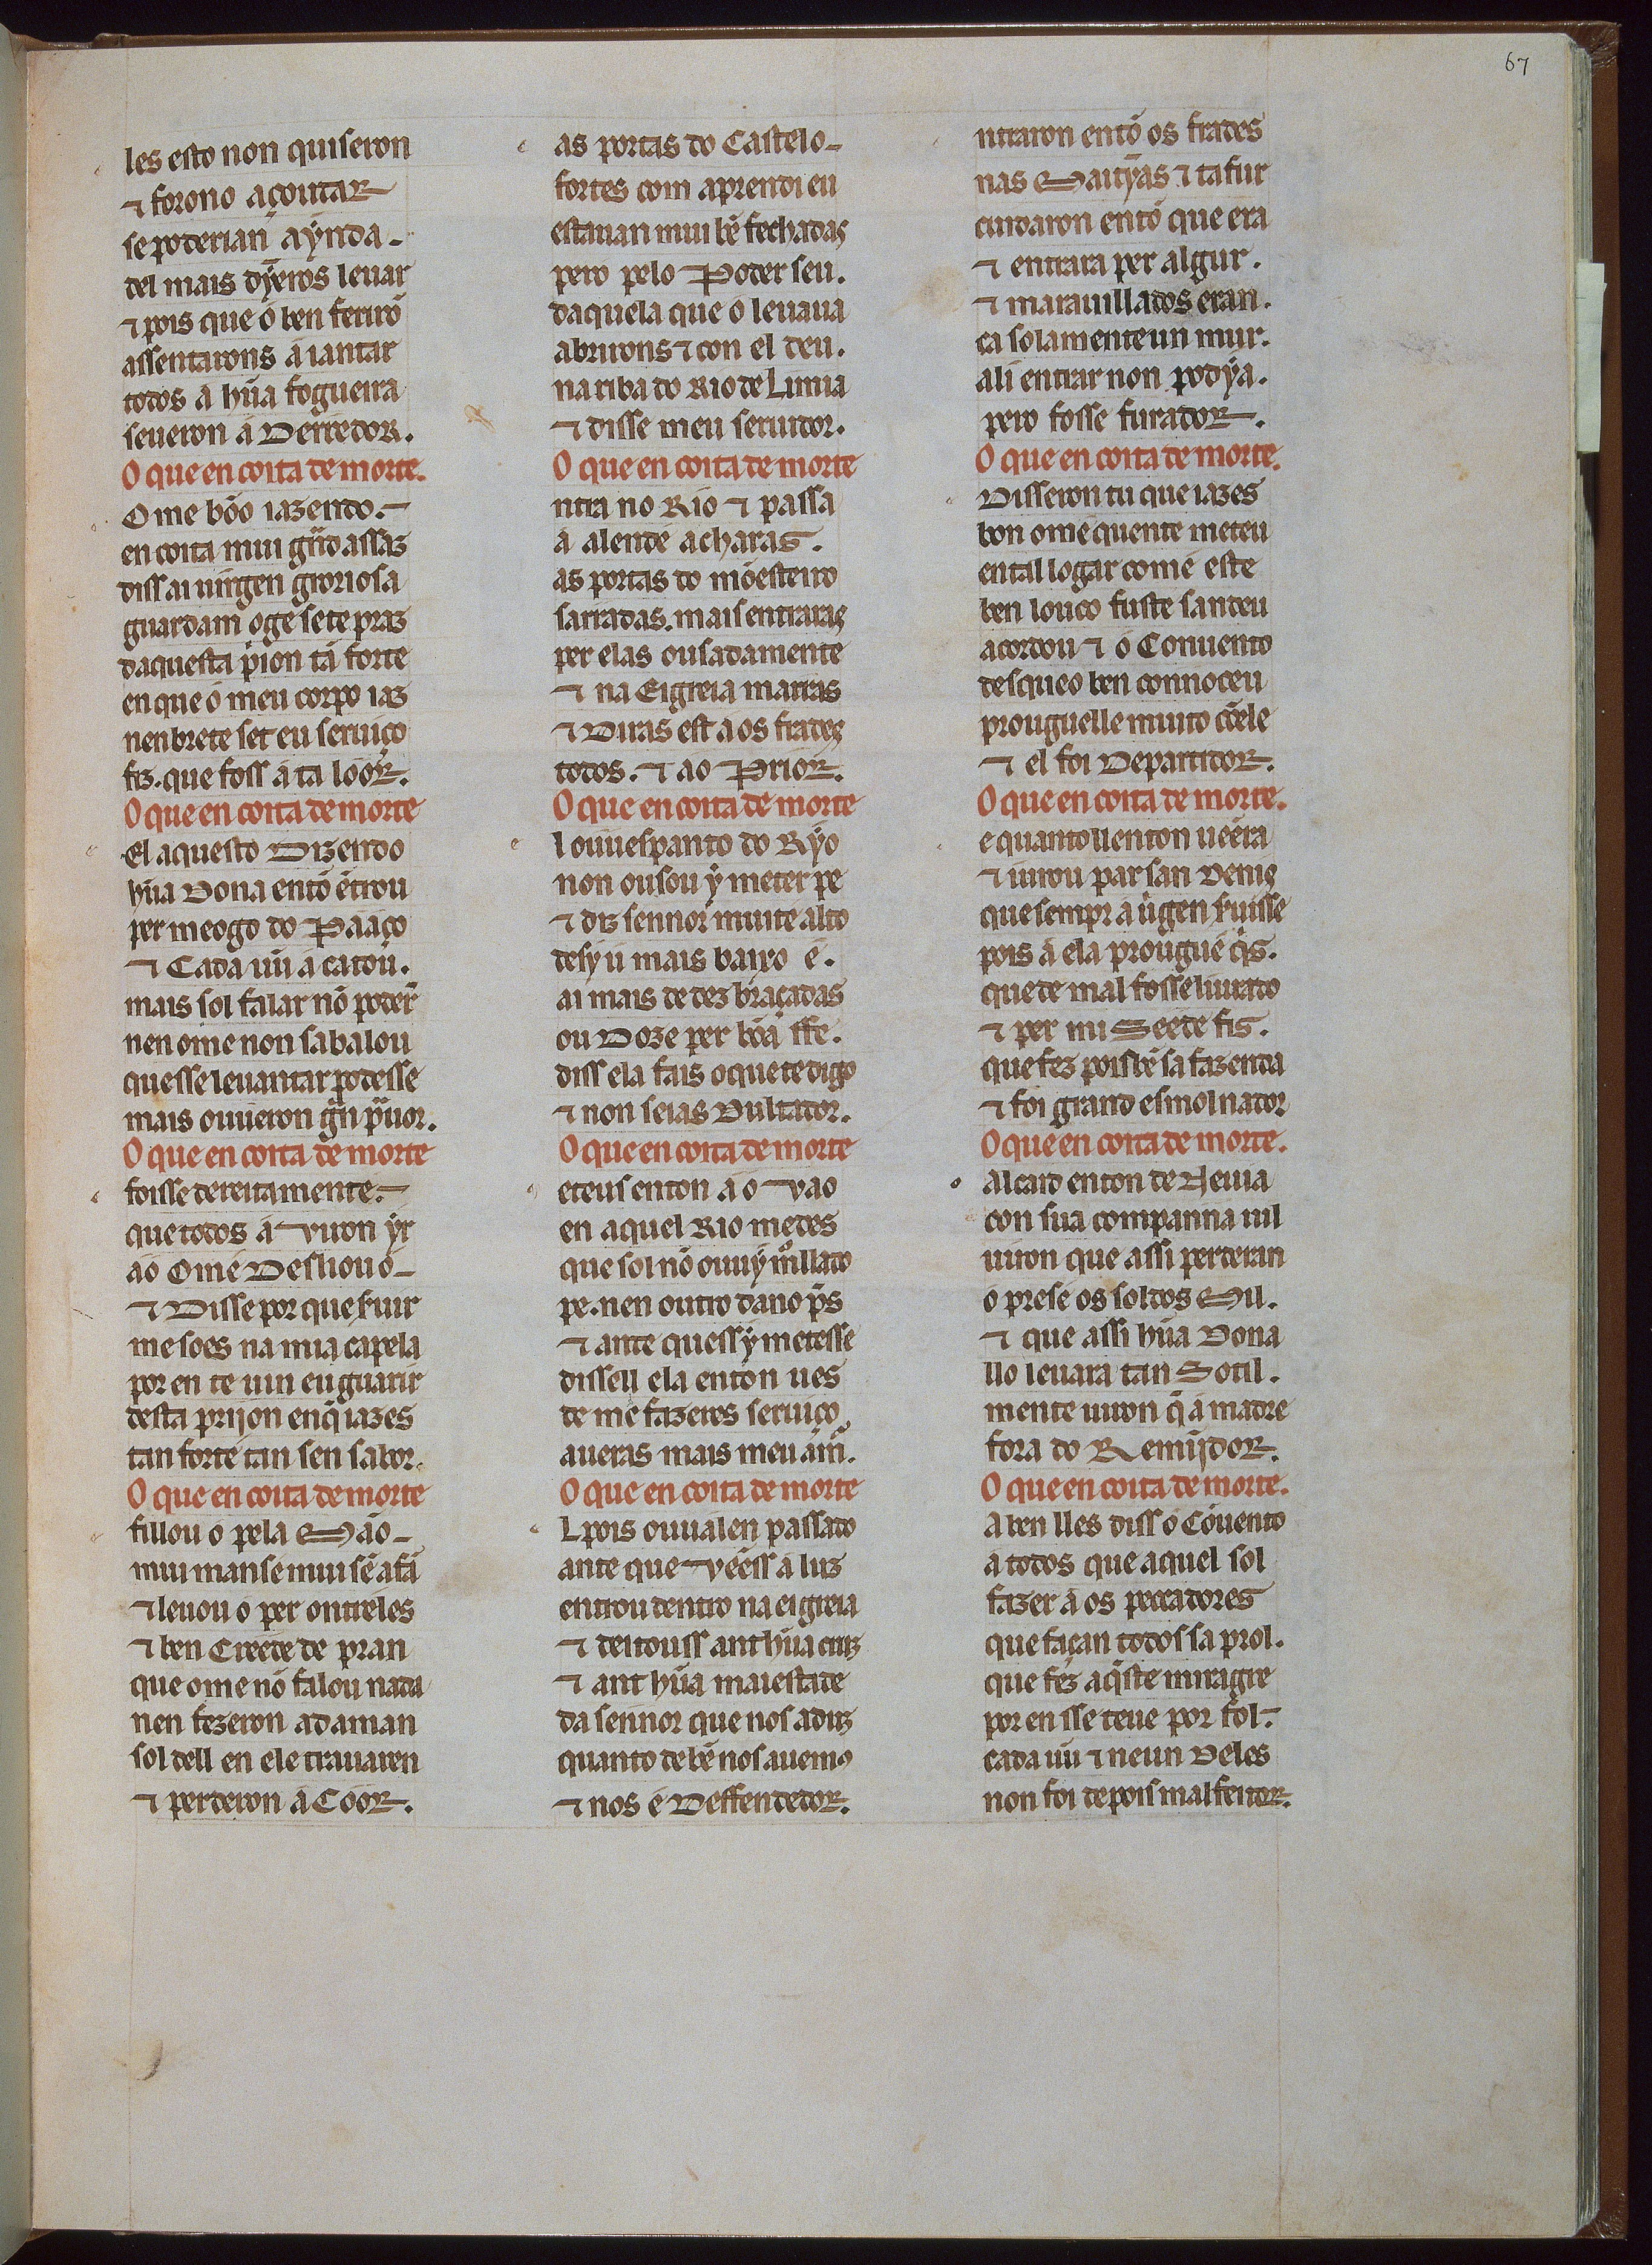 67
les esto non quiseron
⁊ forono açoutar
se poderian aýnda
del mais dỹeros leuar
⁊ pois que ó ben ferirõ
assentarons á iantar
todos a hũa fogueira
seueron á Derredor.
O que en coita de morte.
Ome bõo iazendo.
en coita mui grãd assaz
diss ai uirgen groriosa
guardam oge se te praz
daquesta pion tã forte
en que ó meu corpo iaz
nenbrete sét eu seruiço
fiz. que foss á ta lóor.
O que en coita de morte
El aquesto Dizendo
hũa Dona entõ ẽtrou
per meogo do Paaço
⁊ Cada uũ á catou.
mais sol falar nõ poder̃
nen ome non sabalou
que sse leuantar podesse
mais ouueron gñ pauor.
O que en coita de morte
foisse dereitamente.
que todos á viron ýr
áó Omé Desliou ó
⁊ Disse por que seruir
me soes na mia capela
por en te uin eu guarir
desta prijon enq̃ iazes
tan forté tan sen sabor.
O que en coita de morte
fillou ó pela Mão
mui manse mui sẽ afã
⁊ leuou o per ontreles
⁊ ben Creede de pran
que ome nõ falou nada
nen fezeron adaman
sol dell en ele trauaren
⁊ perderon á Cóor.
as portas do Castelo
fortes com aprendi eu
estauan mui bẽ fechadas
pero pelo Poder seu.
daquela que o leuaua
abrirons ⁊ con el deu.
na riba do Rio de Limia
⁊ disse meu seruidor.
O que en coita de morte
ntra no Rio ⁊ passa
á alende acharas.
as portas do mõesteiro
sarradas. mais entraras
per elas ousadamente
⁊ na Eigreia marras
⁊ Diras est aos frades
todos. ⁊ ao Prior.
O que en coita de morte
l ouuespanto do Rýo
non ousou ý meter pe
⁊ diz sennor muite alto
desý ú mais baixo é.
ai mais de dez braçadas
ou Doze per bõa ffe.
diss ela fais o que te digo
⁊ non seias Dultador.
O que en coita de morte
eteus enton áó vao
en aquel Rio medes
que sol nõ ouuý mollado
pe. nen outro dano ps
⁊ ante quessý metesse
dissell ela enton ues
de me fazeres seruiço
aueras mais meu ámor.
O que en coita de morte
L pois ouualen passado
ante que veess a luz
entrou dentro na eigreia
⁊ deitouss ant hũa cruz
⁊ ant hũa maiestade
da sennor que nos aduz
quanto de bẽ nos auemos
⁊ nos é Deffendedor.
ntraron entõ os frades
nas Matỹas ⁊ tafur
cuidaron entõ que era
⁊ entrara per algur.
⁊ marauillados eran.
ca solamente un mur.
ali entrar non podýa.
pero fosse furador.
O que en coita de morte.
Disseron tu que iazes
bon ome quente meteu
en tal logar comé este
ben louco fuste santeu
acordou ⁊ ó Conuento
desqueo ben connoceu
prouguelle muito cõ ele
⁊ el foi Departidor.
O que en coita de morte.
e quanto ll enton ueera
⁊ iurou par san Denis
que sempr a uirgen seruisse
pois á ela prougue q̃s.
que de mal fosse liurado
⁊ per mi Seede fis.
que fez pois bẽ sa fazenda
⁊ foi grand esmolnador
O que en coita de morte.
alcaid enton de Neuia
con sua companna uil
uiron que assi perderan
ó prese os soldos Mil.
⁊ que assi hũa Dona
llo leuara tan Sotil.
mente uiron q̃ á madre
fora do Remijdor.
O que en coita de morte.
a ben lles diss ó Cõuento
a todos que aquel sol
fazer á os peccadores
que façan todos sa prol.
que fez aq̃ste miragre
por en sse teue por fol.
cada uũ ⁊ neun Deles
non foi depois malfeitor.